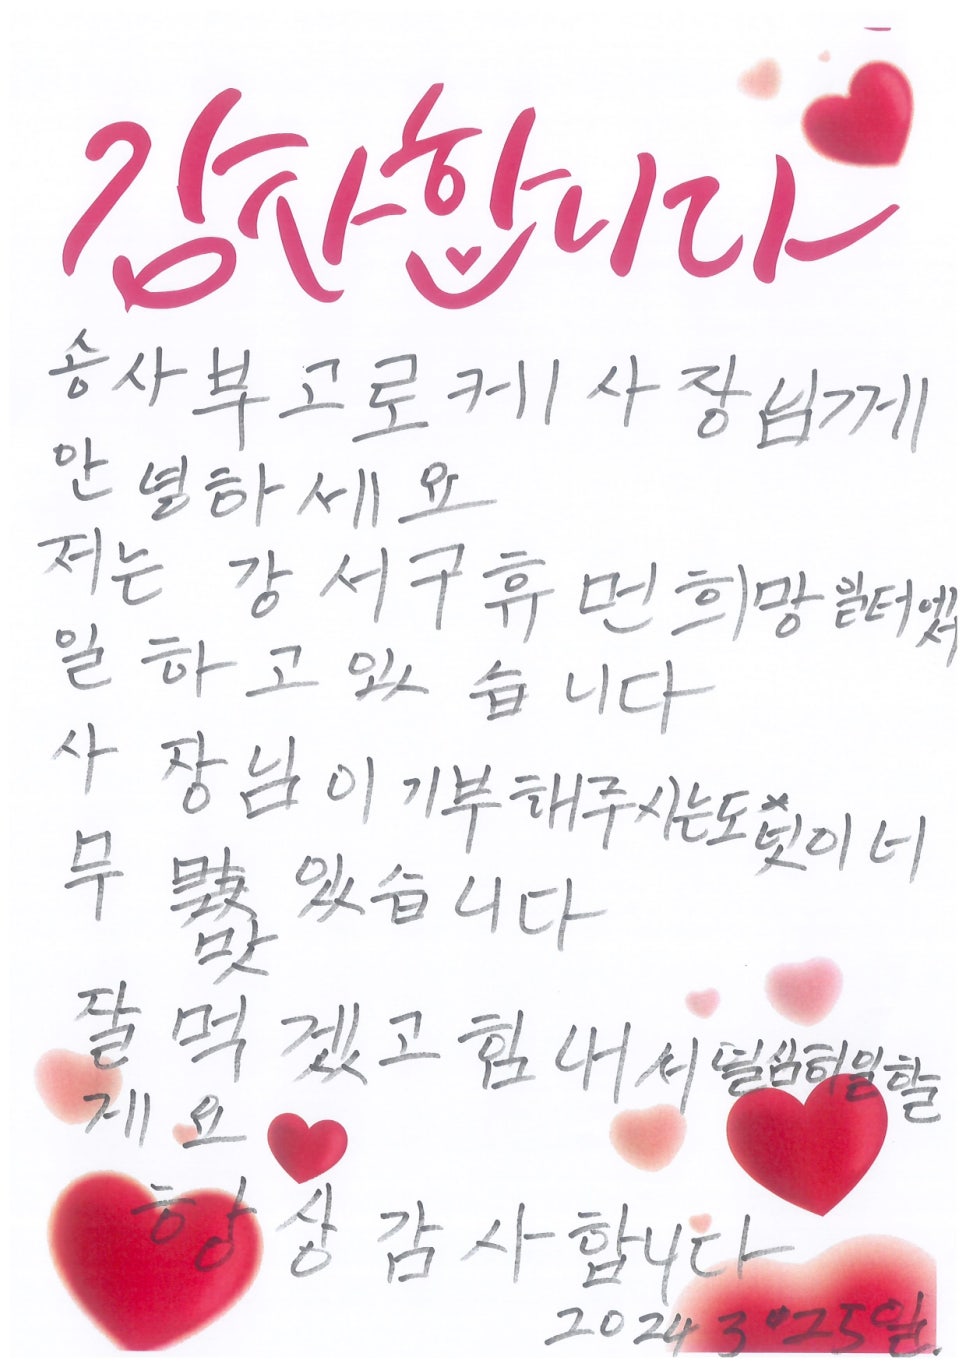 감사합니다
송사부고로케 사장님께
안녕하세요
저는 강서구 휴먼희망일터에서
일하고 있습니다
사장님이 기부해주시는 도넛이 너
무 맛있습니다
잘 먹겠고 힘내서 열심히 일할
게요
항상 감사합니다
2024 3 • 25일.